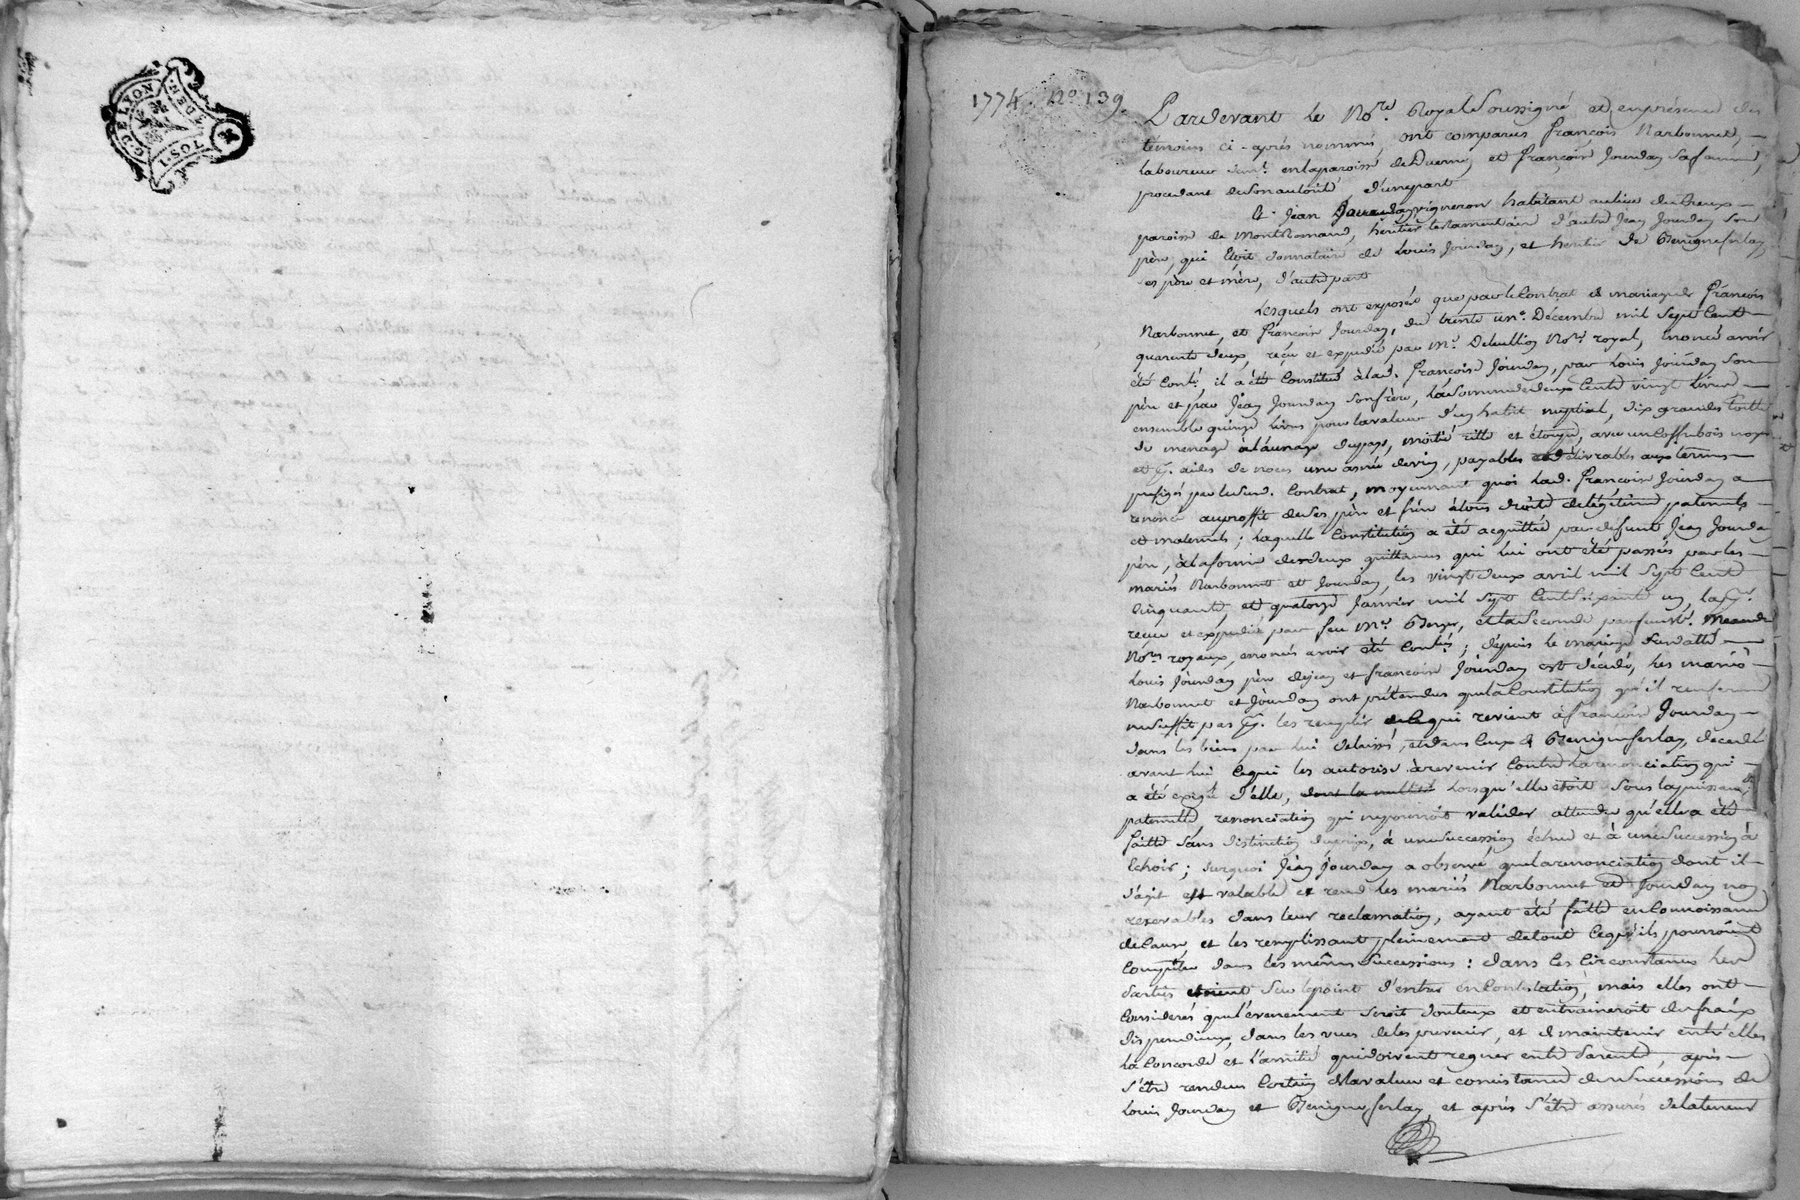 G. DE LYON
1. SOL
DEN.
1774. No. 139.
Pardevant le No.re Royal Soussigné et en présence des
témoins ci-après nommés, ont comparus françois Narbonnet,
laboureur dem.t en la paroisse de Duerne, et françoise Jourdan sa femme,
procedant de son autorité, d'une part
Et Jean Jourdan vigneron habitant au lieu du
paroisse de Montromand, heritier testamentaire d'autre Jean Jourdan son
père, qui étoit donnataire de Louis Jourdan, et heritier de Benigne ferlay,
ses père et mère, d'autre part
Lesquels ont exposés que par le Contrat de mariage de françois
Narbonnet, et françoise Jourdan, du trente un.e Décembre mil sept Cent
quarente deux, reçu et expedié par M.e No.re royal, énoncé avoir
été Cont.é, il a été Constitué à lad. françoise Jourdan, par Louis Jourdan son
père et par Jean Jourdan son frère, la somme de deux Cents vingt livres
ensemble quinze livres pour la valeur d'un habit nuptial, dix grandes toille
de menage à l'aunage du pays, moitié ritte et étoupe, avec un Coffre bois noyer
et p.r aides de noces une asnée de vin, payables et délivrables aux termes
prefigés par le susd. Contrat, moyennant quoi lad. françoise Jourdan a
renoncé au proffit de ses père et frère à tous droits de légitime paternels
et maternels; laquelle Constitution a été acquittée par défunt Jean Jourdan
père, à la forme des deux quittances qui lui ont été passés par les
mariés Narbonnet et Jourdan, les vingt deux avril mil sept Cent
Cinquante, et quatorze Janvier mil sept Cent soixante un, la p.re
reçue et expediée par feu M.e et la seconde par
No.res royaux, énoncés avoir été Cont.és; depuis le mariage susdatté
Louis Jourdan père de Jean et françoise Jourdan est décédé, les mariés
Narbonnet et Jourdan ont prétendus que la Constitution qu'il renferme
ne suffit pas p.r les remplir de ce qui revient à françoise Jourdan
dans les biens par lui delaissé, et dans Ceux de Benigne ferlay, decedée
avant lui Ce qui les autorise à revenir Contre la renonciation qui
a été exigée d'elle, dont la nullité lorsqu'elle étoit sous la puissance
paternelle renonciation qui ne pourroit valider attendu qu'elle a été
faitte sans distinction de prix, à une succession échue et à une succession à
Echoir; surquoi Jean Jourdan a observé que la renonciation dont il
s'agit est valable et rend les mariés Narbonnet et Jourdan non
recevables dans leur reclamation, ayant été faitte en Connoissance
de Cause, et les remplissant pleinement de tout Ce qu'ils pourroient
Compéter dans les mêmes successions: dans Ces Circonstances les
parties etoient sur le point d'entrer en Contestation, mais elles ont
Considerés que l'evenement seroit douteux et entraineroit des fraix
dispendieux, dans les vues de les prevenir, et de maintenir entr'elles
la Concorde et l'amitié qui doivent regner entre parents, après
s'être rendus Certains de la valeur et consistance des successions de
Louis Jourdan et Benigne ferlay, et après s'être assurés de la teneur